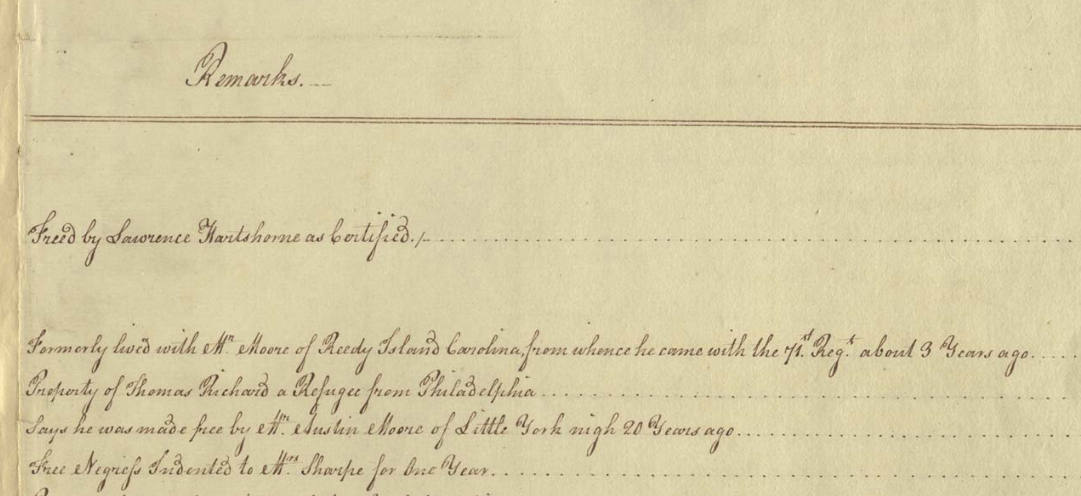 Remarks.
Freed by Lawrence Hartshorne as Certified./
Formerly lived with Mr. Moore of Reedy Island Carolina, from whence he came with the 71st Regt. about 3 Years ago.
Property of Thomas Richard a Refugee from Philadelphia
Says he was made free by Mr. Austin Moore of Little York nigh 20 Years ago.
Free Negress Indented to Mrs. Sharpe for One Year.